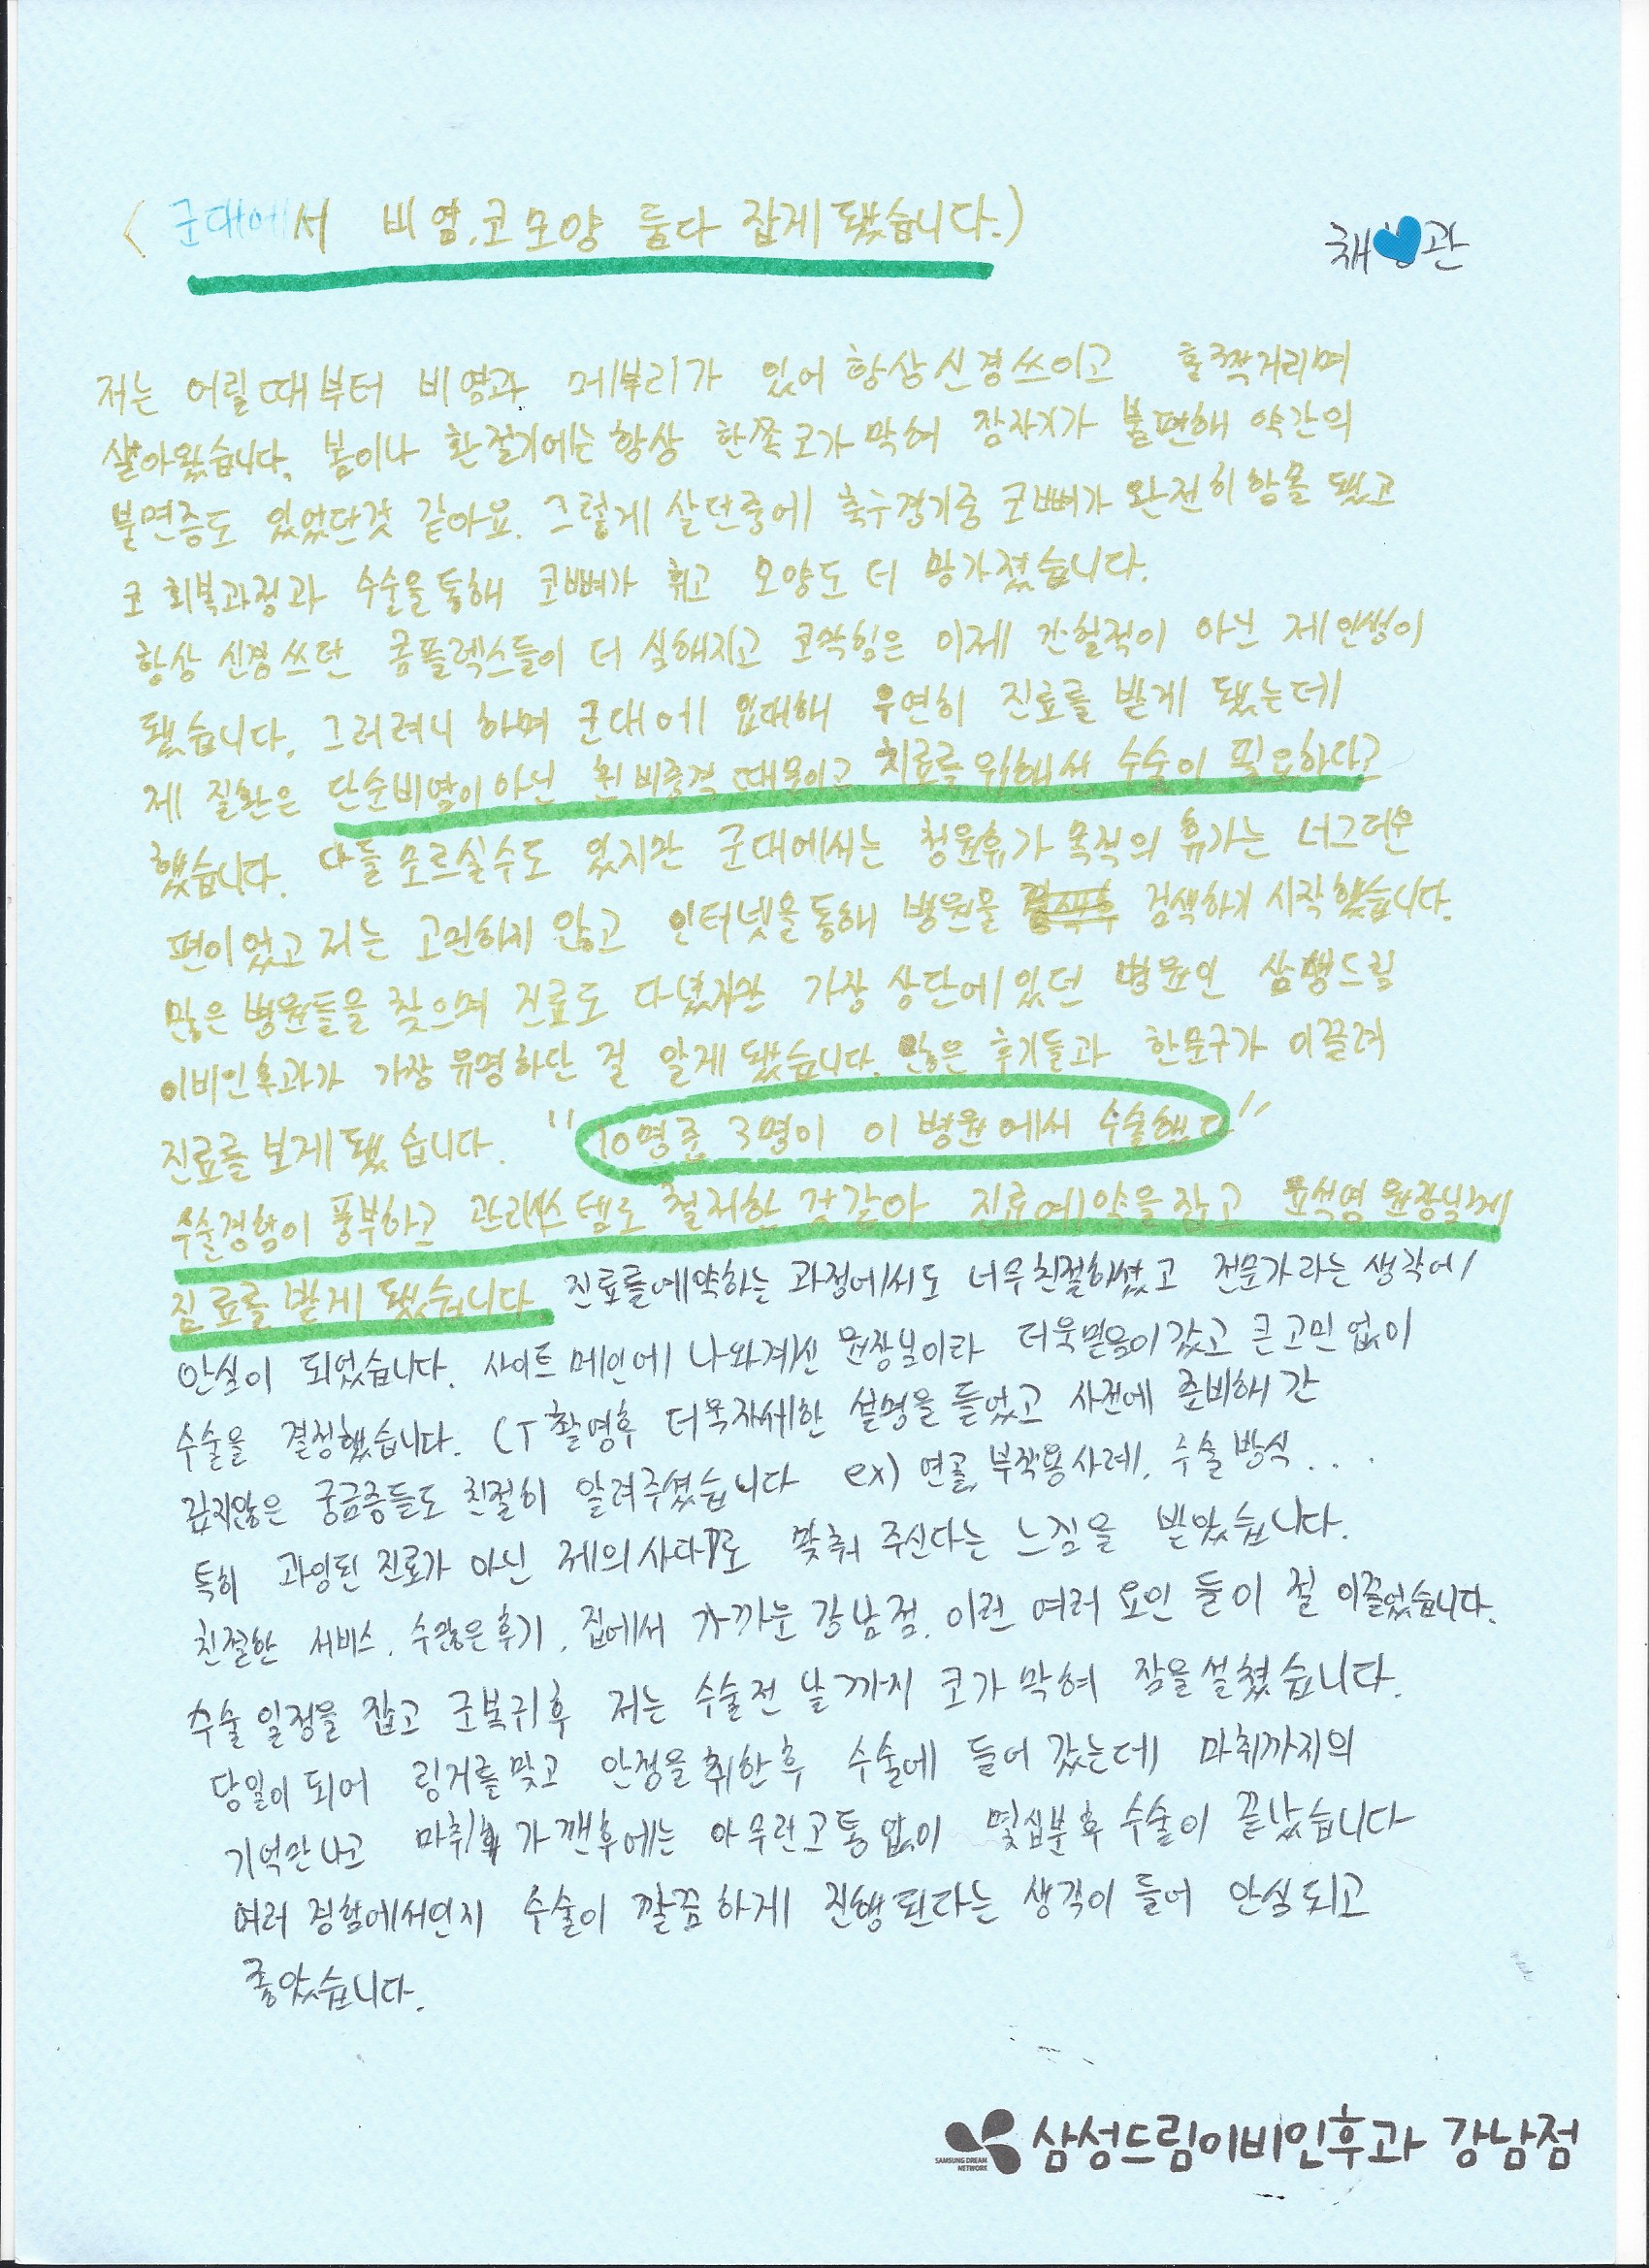 < 군대에서 비염, 코모양 둘다 잡게 됐습니다.)
채 관
저는 어릴때부터 비염과 메부리가 있어 항상 신경쓰이고 훌쩍거리며
살아왔습니다. 봄이나 환절기에는 항상 한쪽 코가 막혀 잠자기가 불편해 약간의
불면증도 있었던것 같아요. 그렇게 살던중에 축구경기중 코뼈가 완전히 함몰 됐고
코 회복과정과 수술을 통해 코뼈가 휘고 모양도 더 망가졌습니다.
항상 신경쓰던 콤플렉스들이 더 심해지고 코막힘은 이제 간헐적이 아닌 제 인생이
됐습니다. 그러려니 하며 군대에 입대해 우연히 진료를 받게 됐는데
제 질환은 단순비염이 아닌 휜 비중격 때문이고 치료를 위해선 수술이 필요하다고
했습니다. 다들 모르실수도 있지만 군대에서는 청원휴가 목적의 휴가는 너그러운
편이었고 저는 고민하지 않고 인터넷을 통해 병원을 검색하기 시작했습니다.
많은 병원들을 찾으며 진료도 다녔지만 가장 상단에 있던 병원인 삼성드림
이비인후과가 가장 유명하단 걸 알게 됐습니다. 많은 후기들과 한문구가 이끌려
진료를 보게 됐습니다. "10명중 3명이 이 병원에서 수술했다"
수술경험이 풍부하고 관리시스템도 철저한 것 같아 진료예약을 잡고 윤석염 원장님께
진료를 받게 됐습니다. 진료를 예약하는 과정에서도 너무 친절하셨고 전문가라는 생각에
안심이 되었습니다. 사이트 메인에 나와계신 원장님이라 더욱 믿음이 갔고 큰 고민 없이
수술을 결정했습니다. CT 촬영후 더욱 자세한 설명을 들었고 사전에 준비해 간
깊지않은 궁금증들도 친절히 알려주셨습니다 ex) 연골, 부작용사례, 수술 방식...
특히 과잉된 진료가 아닌 제의사대로 맞춰 주신다는 느낌을 받았습니다.
친절한 서비스, 수많은 후기, 집에서 가까운 강남점. 이런 여러 요인 들이 절 이끌었습니다.
수술 일정을 잡고 군복귀후 저는 수술전 날까지 코가 막혀 잠을 설쳤습니다.
당일이 되어 링거를 맞고 안정을 취한후 수술에 들어 갔는데 마취까지의
기억만 나고 마취 가 깬후에는 아무런 고통 없이 몇십분후 수술이 끝났습니다
여러 경험에서인지 수술이 깔끔하게 진행된다는 생각이 들어 안심되고
좋았습니다.
SAMSUNG DREAM NETWORK
삼성드림이비인후과 강남점